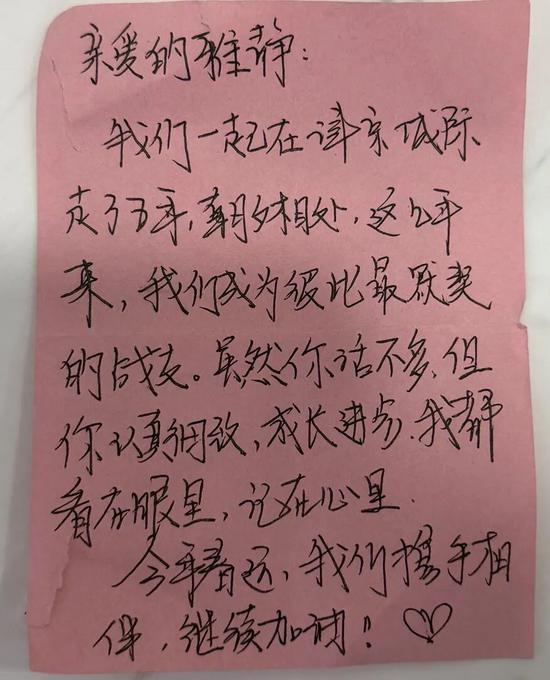 亲爱的雅静：
我们一起在津京城际
走了五年，朝夕相处，这几年
来，我们成为彼此最默契
的战友。虽然你话不多，但
你认真细致，成长进步，我都
看在眼里，记在心里.
今年春运，我们携手相
伴，继续加油！♡